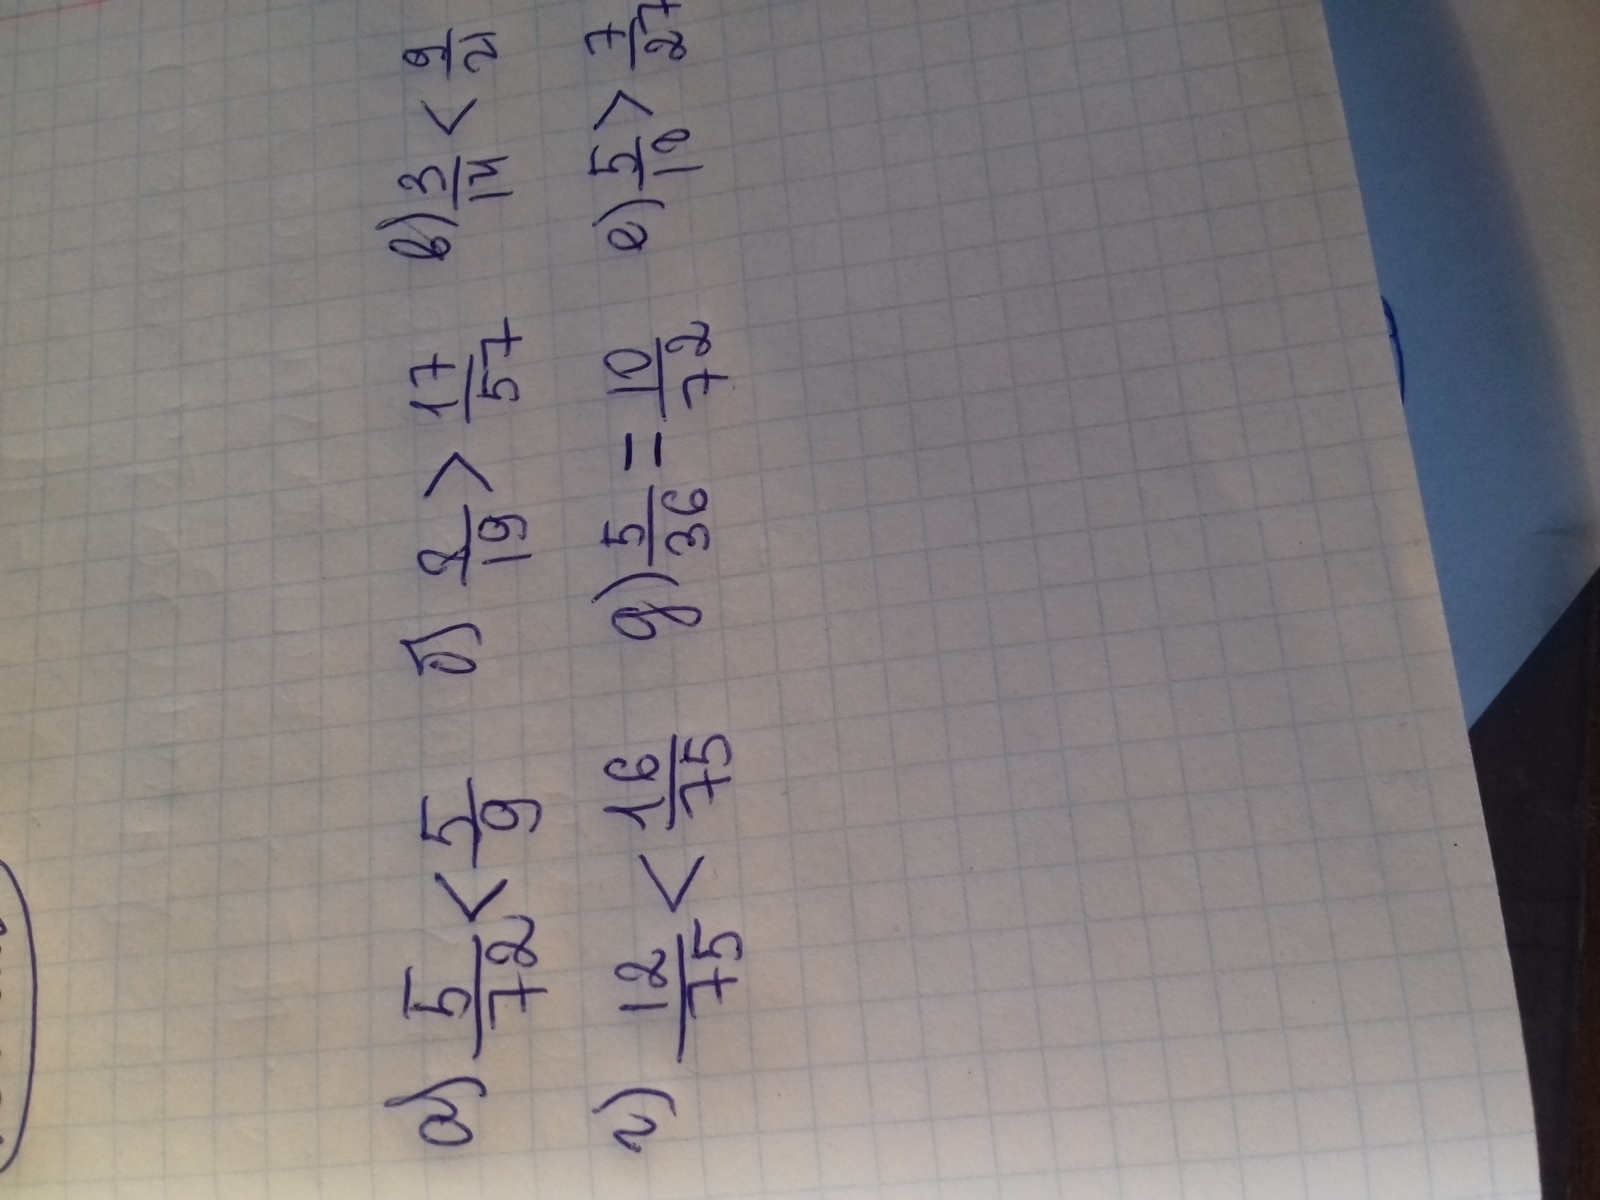 а) 5/72 < 5/9 б) 2/19 > 17/57 в) 3/14 < 9/21
г) 12/75 < 16/75 д) 5/36 = 10/72 е) 5/18 > 7/27